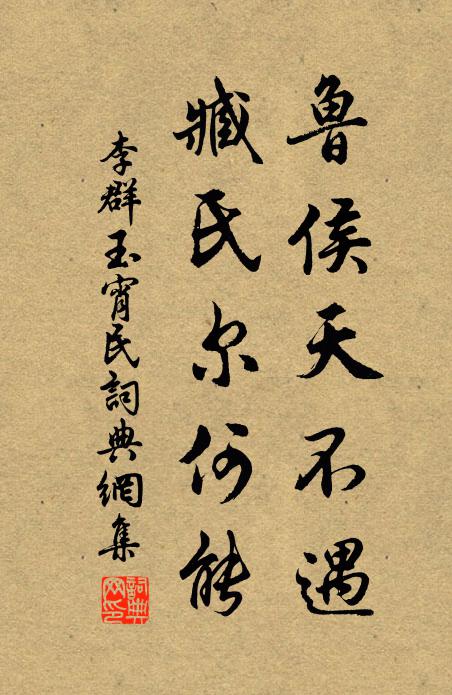 鲁侯天不遇
臧氏尔何能
李群玉宵民詞典網集
詞典
网印